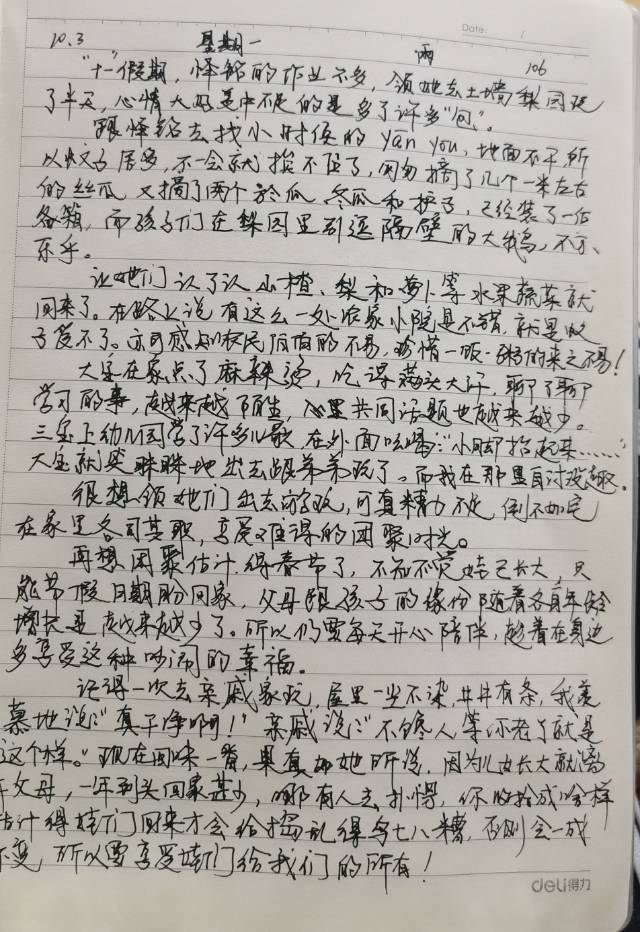 Date: /
10.3 星期一 雨 106
"十一"假期,怪的作业不多,领她去土墙梨园玩
了半天,心情大好美中不足的是多了许多"包"。
跟怪去找小时侯的 yān you,地面不平所
以蚊为居多,不一会就挨不住了,因匆摘了几个一米左右
的丝瓜 又摘了两个瓜 冬瓜和子,已经装了一后
备箱,而孩子们在梨园里引逗隔壁的大鹅,不亦
乐乎。
让她们认了认 山楂、梨和萝卜等水果蔬菜就
回来了。在路上说 有这么一处农家小院是不错,就是蚊
子受不了。亦可感知农民伯伯的不易,珍惜一饭一粥的来之不易!
大宝在家点了麻辣烫,吃得满头大汗,聊了聊
学习的事,越来越陌生,心里共同话题也越来越少。
三宝上幼儿园学了许多儿歌 在外面吆喝:"小脚抬起来……"
大宝就笑眯眯地出去跟弟弟玩了。而我在那里自讨没趣。
很想领她们出去游玩,可真精力不足,倒不如宅
在家里各司其职,享受难得的团聚时光。
再想团聚估计得春节了,不知不觉娃已长大,只
能节假日期盼回家,父母跟孩子的缘份随着各自年龄
增长是越来越少了。所以仍要每天开心陪伴,趁着在身边
多享受这种吵闹的幸福。
记得一次去亲戚家玩,屋里一尘不染 井井有条,我羡
慕地说:"真干净啊!"亲戚说:"不馋人 等你老了就是
这个样。"现在回味一番,果真如她所说,因为儿女长大就离
开父母,一年到头回家甚少,哪有人去扑愣,你收拾成啥样
估计得娃们回来才会给捣乱得乱七八糟,否则会一成
不变,所以要享受娃们给我们的所有!
deli得力